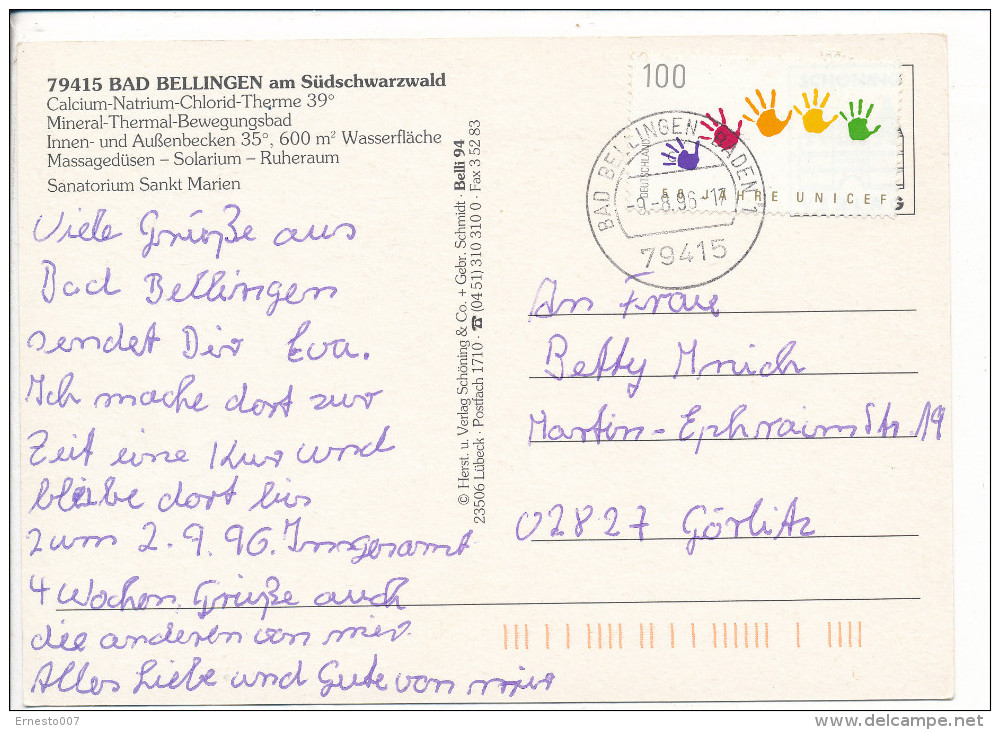 79415 BAD BELLINGEN am Südschwarzwald
Calcium-Natrium-Chlorid-Therme 39°
Mineral-Thermal-Bewegungsbad
Innen- und Außenbecken 35°, 600 m² Wasserfläche
Massagedüsen – Solarium – Ruheraum
Sanatorium Sankt Marien
Viele Grüße aus
Bad Bellingen
sendet Dir Eva.
Ich mache dort zur
Zeit eine Kur und
bleibe dort bis
zum 2.9.96. Insgesamt
4 Wochen, Grüße auch
die anderen von mir.
Alles Liebe und Gute von mir
© Herst. u. Verlag Schöning & Co. + Gebr. Schmidt · Belli 94
23506 Lübeck · Postfach 1710 · ☎ (04 51) 310 310 0 · Fax 3 52 83
100
DEUTSCHLAND
50 JAHRE UNICEF
BAD BELLINGEN, BADEN 1
-9.-8.96-17
79415
An Frau
Betty Mnich
Martin-Ephraim Str. 19
02827 Görlitz
Ernesto007
www.delcampe.net